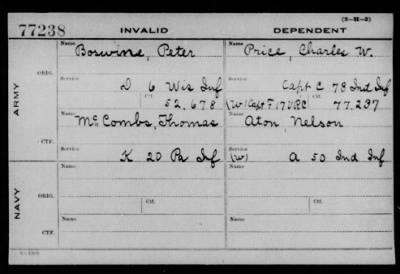 (3-H-3)
77238 INVALID DEPENDENT
ARMY
ORIG.
Name Name
Boswine, Peter Price, Charles W.
Service Service
D 6 Wis Inf Capt C 78 Ind Inf
Ctf. Ctf.
52,678 (W) Capt F 17 VRC 77,237
Name Name
McCombs, Thomas Aton, Nelson
Service
K 20 Pa Inf (W) A 50 Ind Inf
NAVY
ORIG.
Name Name
Service Service
Ctf. Ctf.
Name Name